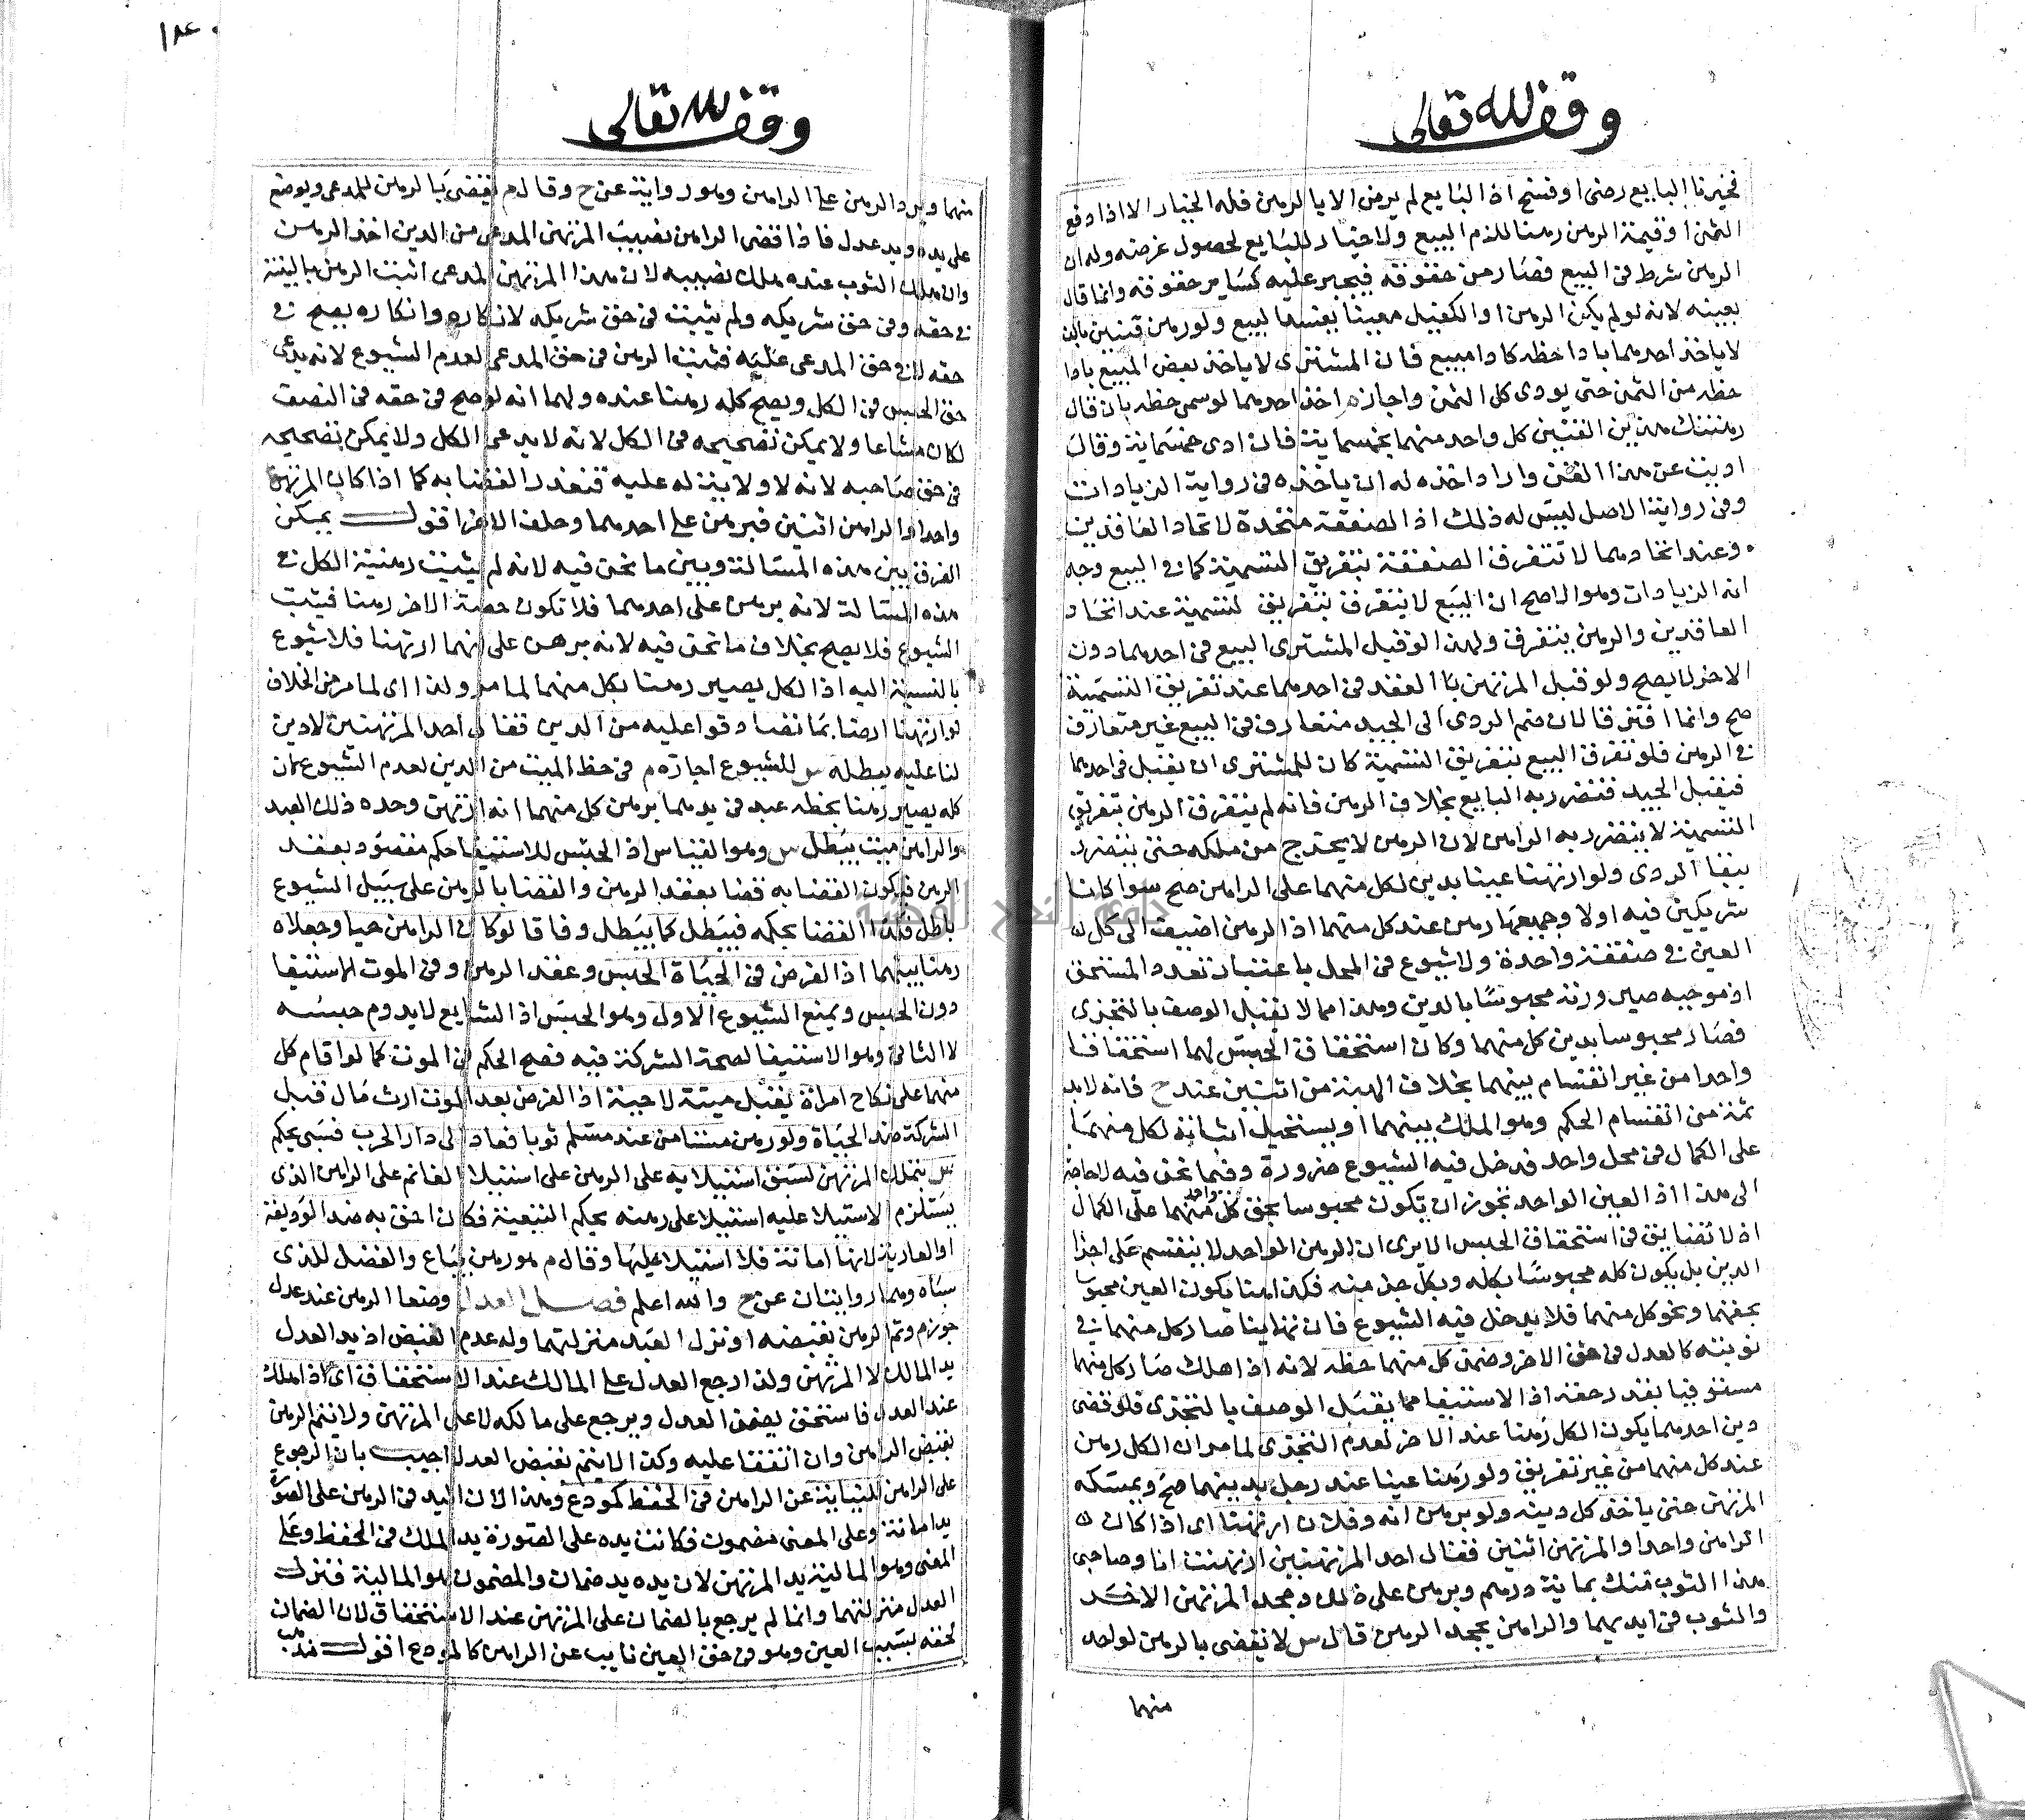 وقف لله تعالى
فخيرنا البايع رضى او فسخ اذ البايع لم يرض الا بالرهن فله الخيار الا اذا دفع
الثمن او قيمة الرهن رهنا للذم البيع ولا خيار للبايع لحصول غرضه وله ان
الرهن شرط في البيع فصار من حقوقه فيجبر عليه كساير حقوقه وانما قال
بعينه لانه لو لم يكن الرهن او الكفيل معينا يفسد البيع ولو رهن قنين بالف
لا ياخذ احدهما بادا حظه كادا مبيع فان المشترى لا ياخذ بعض المبيع بادا
حظه من الثمن حتى يودى كل الثمن واجازه اخذ احدهما لو سمى حظه بان قال
رهنتك هذين القنين كل واحد منهما بخمسماية فان ادى خمسماية وقال
اديت عن هذا القن واراد اخذه له ان ياخذه في رواية الزيادات
وفي رواية الاصل ليس له ذلك اذ الصفقة متحدة لاتحاد العاقدين
وعند اتحادهما لا تتفرق الصفقة بتفريق التسمية كما في البيع وجه
انه الزيادات وهو الاصح ان البيع لا يتفرق بتفريق لتسمية عند اتحاد
العاقدين والرهن يتفرق ولهذا لو قبل المشترى البيع في احدهما دون
الاخر لا يصح ولو قبل المرتهن با العقد في احدهما عند تفريق التسمية
صح وانما افترقا لان ضم الردى الى الجيد متعارف في البيع غير متعارف
في الرهن فلو تفرق البيع بتفريق التسمية كان للمشترى ان يقبل في احدهما
فيقبل الجيد فتضرر به البايع بخلاف الرهن فانه لم يتفرق الرهن بتفريق
التسمية لا يتضرر به الراهن لان الرهن لا يخرج من ملكه حتى يتضرر
ببقا الردى ولو ارتهنا عينا بدين لكل منهما على الراهن صح سوا كانا
شريكين فيه او لا وجميعها رهن عند كل منهما اذ الرهن اضيف الى كل
العين في صفقة واحدة ولا شيوع في المحل باعتبار تعدد المستحق
اذ موجبه صيرورته محبوسا بالدين وهذا مما لا يقبل الوصف بالتجزى
فصار محبوسا بدين كل منهما وكان استحقاق الحبس لهما استحقاقا
واحدا من غير انقسام بينهما بخلاف الهبة من اثنين عند ح فانه لابد
ثمة من انقسام الحكم وهو الملك بينهما او يستحيل اثباته لكل منهما
على الكمال في محل واحد فدخل فيه الشيوع ضرورة وفيما نحن فيه لا حاجة
الى هذا اذ العين الواحد تجوز ان يكون محبوسا بحق كل واحد منهما على الكمال
اذ لا تضايق في استحقاق الحبس الا يرى ان الرهن الواحد لا ينقسم على اجزا
الدين بل يكون كله محبوسا بكله وبكل جز منه فكذا هنا يكون العين محبوسا
بحقهما وبحق كل منهما فلا يدخل فيه الشيوع فان تهايئا صار كل منهما في
نوبته كالعدل في حق الاخر وضمن كل منهما حظه لانه اذا هلك صار كل منهما
مستوفيا بقدر حقه اذ الاستيفا مما يقبل الوصف بالتجزى فلو قضى
دين احدهما يكون الكل رهنا عند الاخر لعدم التجزى لما مر ان الكل رهن
عند كل منهما من غير تفريق ولو رهنا عينا عند رجل بدينهما صح ويمسكه
المرتهن حتى ياخذ كل دينه ولو برهن انه وفلان ارتهنا اى اذا كان
الراهن واحدا والمرتهن اثنين فقال احد المرتهنين ارتهنت انا وصاحبى
هذا الثوب منك بماية درهم وبرهن على ذلك وجحد المرتهن الاخر
والثوب في ايديهما والراهن يجحد الرهن قال س لا نقضى بالرهن لواحد
منهما
وقف لله تعالى
منهما ويرد الرهن على الراهن وهو رواية عن ح وقال م نقضى بالرهن للمدعى ويوضع
على يده ويد عدل فاذا قضى الراهن نصيب المرتهن المدعى من الدين اخذ الرهن
وان هلك الثوب عنده هلك نصيبه لان هذا المرتهن المدعى اثبت الرهن بالبينة
في حقه وفي حق شريكه ولم يثبت في حق شريكه لانكاره وانكاره يصح في
حقه لا في حق المدعى عليه فثبت الرهن في حق المدعى لعدم الشيوع لانه يدعى
حق الحبس في الكل ويصح كله رهنا عنده ولهما انه لو صح في حقه في النصف
لكان مشاعا ولا يمكن تصحيحه في الكل لانه لا يدعى الكل ولا يمكن تصحيحه
في حق صاحبه لانه لا ولاية له عليه فتعذر القضا به كما اذا كان المرتهن
واحدا والراهن اثنين فبرهن على احدهما وحلف الاخر اقول يمكن
الفرق بين هذه المسالة وبين ما نحن فيه لانه لم يثبت رهنية الكل في
هذه المسالة لانه برهن على احدهما فلا تكون حصة الاخر رهنا فيثبت
الشيوع فلا يصح بخلاف ما نحن فيه لانه برهن على انهما ارتهنا فلا شيوع
بالنسبة اليه اذ الكل يصير رهنا بكل منهما لما مر ولذا اى لما مر من الخلاف
لو ارتهنا ارضا بما تصادقوا عليه من الدين فقال احد المرتهنين لا دين
لنا عليه يبطله س للشيوع اجازه م في حظ المثبت من الدين لعدم الشيوع كان
كله يصير رهنا بحظه عبد في يدهما برهن كل منهما انه ارتهن وحده ذلك العبد
والراهن ميت يبطل س وهو القياس اذ الحبس للاستيفا حكم مقصود بعقد
الرهن فيكون القضا به قضا بعقد الرهن والقضا بالرهن على سبيل الشيوع
باطل فكذا القضا بحكمه فيبطل كما يبطل وفاقا لو كان الراهن حيا وجعلاه
رهنا بينهما اذ الغرض في الحياة الحبس وعقد الرهن وفي الموت الاستيفا
دون الحبس ويمنع الشيوع الاول وهو الحبس اذ الشايع لا يدوم حبسه
لا الثانى وهو الاستيفا لصحة الشركة فيه فصح الحكم في الموت كما لو اقام كل
منهما على نكاح امراة يقبل ميتة لا حية اذ الغرض بعد الموت ارث مال قبل
الشركة ضد الحياة ولو رهن مستامن عند مسلم ثوبا فعاد الى دار الحرب فسبى يحكم
س بتملك المرتهن لسبق استيلايه على الرهن على استيلا الغانم على الراهن الذى
يستلزم الاستيلا عليه استيلا على رهنه بحكم التبعية فكان احق به ضد الوديعة
او العارية لانها امانة فلا استيلا عليها وقال م هو رهن يباع والفضل للذى
سباه وهما روايتان عن ح والله اعلم فصل العدل وضعا الرهن عند عدل
جوزم وتم الرهن بقبضه او نزل العبد منزلتهما وله عدم القبض اذ يد العدل
يد المالك لا المرتهن ولذا رجع العدل على المالك عند الاستحقاق اى اذا هلك
عند العدل فاستحق يضمن العدل ويرجع على مالكه لا على المرتهن ولا يتم الرهن
بقبض الراهن وان اتفقا عليه وكذا لا يتم بقبض العدل اجيب بان الرجوع
على الراهن للنيابة عن الراهن في الحفظ كمودع وهذا لان اليد في الرهن على الصورة
يد امانة وعلى المعنى مضمون فكانت يده على الصورة يد الملك في الحفظ وعلى
المعنى وهو المالية يد المرتهن لان يده يد ضمان والمضمون هو المالية فنزل
العدل منزلتهما وانما لم يرجع بالضمان على المرتهن عند الاستحقاق لان الضمان
لحقه بسبب العين وهو في حق العين نايب عن الراهن كالمودع اقول
جامعة النجاح الوطنية